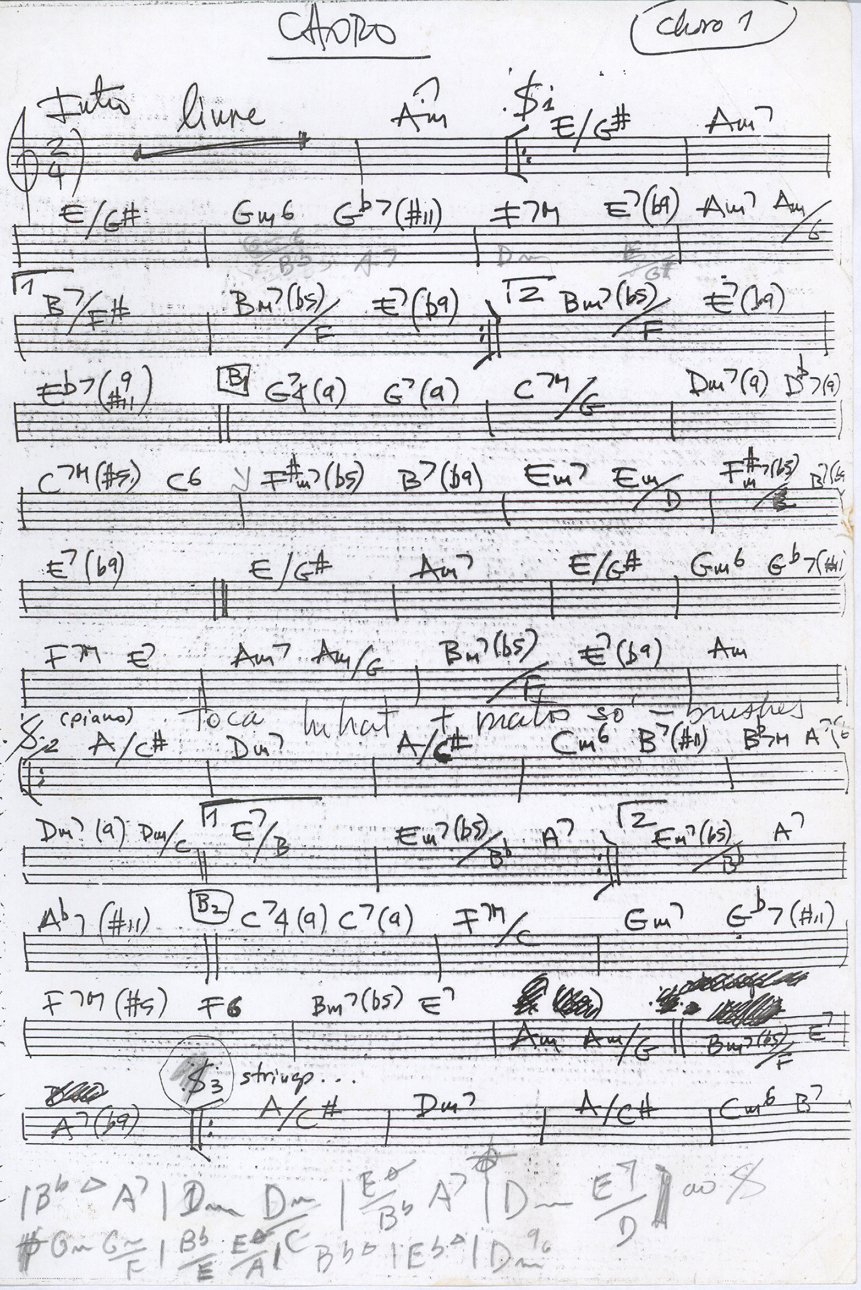 CHORO
Choro 1
Intro livre Am7 $1 E/G# Am7
2/4
E/G# Gm6 Gb7(#11) F7M E7(b9) Am7 Am/G
Bb A7 Dm E/G#
1 B7/F# Bm7(b5)/F E7(b9) 2 Bm7(b5)/F E7(b9)
Eb7(9 #11) B1 G74(9) G7(9) C7M/G Dm7(9) Db7(9)
C7M(#5) C6 F#m7(b5) B7(b9) Em7 Em/D F#m7(b5)/B B7(b9
E7(b9) E/G# Am7 E/G# Gm6 Gb7(#11)
F7M E7 Am7 Am/G Bm7(b5)/F E7(b9) Am
(piano) Toca hihat + mato só - brushes
$2 A/C# Dm7 A/C# Cm6 B7(#11) Bb7M A7(b
Dm7(9) Dm/C 1 E7/B Em7(b5)/Bb A7 2 Em7(b5)/Bb A7
Ab7(#11) B2 C74(9) C7(9) F7M/C Gm7 Gb7(#11)
F7M(#5) F6 Bm7(b5) E7
Am Am/G Bm7(b5)/F E7
$3 strings...
A7(b9) A/C# Dm7 A/C# Cm6 B7
| Bb△ A7 | Dm Dm/C | Eø/Bb A7 | Dm E7/D | ao $
Gm Gm/F | Bb/E Eø/A | Bb△ | Eb△ | Dm96